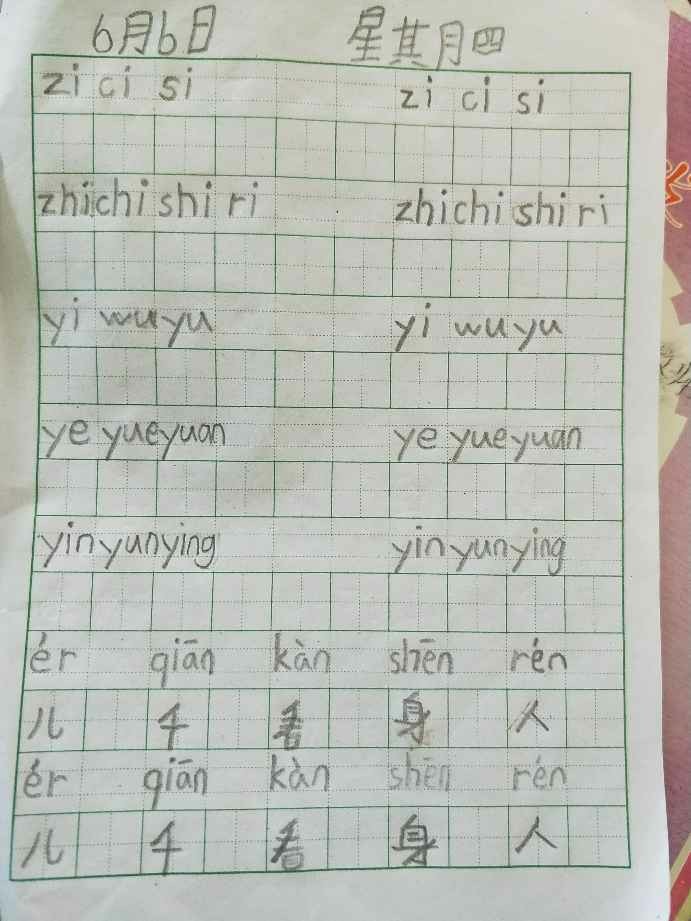 6月6日 星其月四
zi ci si zi ci si
zhi chi shi ri zhi chi shi ri
yi wu yu yi wu yu
ye yue yuan ye yue yuan
yin yun ying yin yun ying
ér qiān kàn shēn rén
儿 千 看 身 人
ér qiān kàn shēn rén
儿 千 看 身 人